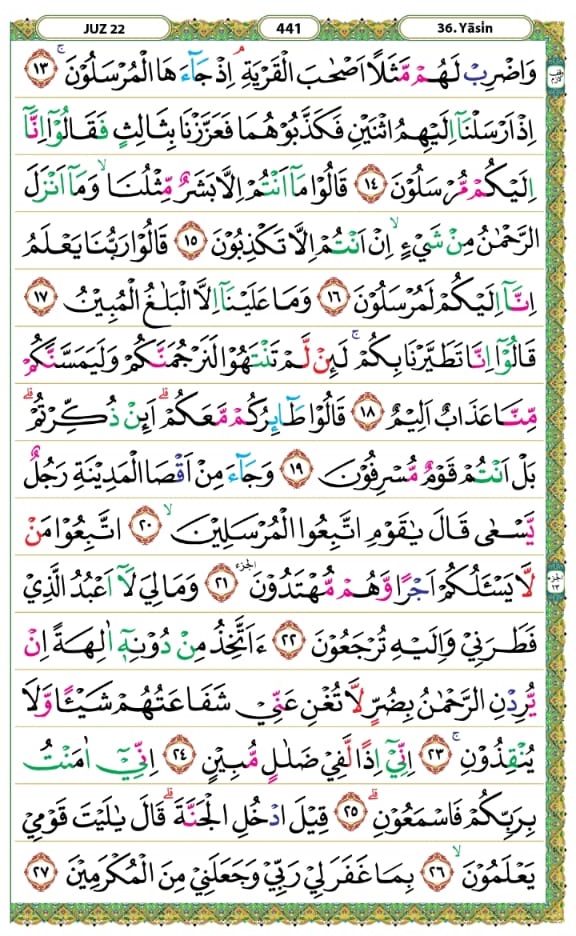 JUZ 22
441
36. Yāsin
وَاضْرِبْ لَهُمْ مَّثَلًا اَصْحٰبَ الْقَرْيَةِۘ اِذْ جَاۤءَهَا الْمُرْسَلُوْنَۚ ١٣
اِذْ اَرْسَلْنَآ اِلَيْهِمُ اثْنَيْنِ فَكَذَّبُوْهُمَا فَعَزَّزْنَا بِثَالِثٍ فَقَالُوْٓا اِنَّآ
اِلَيْكُمْ مُّرْسَلُوْنَ ١٤ قَالُوْا مَآ اَنْتُمْ اِلَّا بَشَرٌ مِّثْلُنَاۙ وَمَآ اَنْزَلَ
الرَّحْمٰنُ مِنْ شَيْءٍۙ اِنْ اَنْتُمْ اِلَّا تَكْذِبُوْنَ ١٥ قَالُوْا رَبُّنَا يَعْلَمُ
اِنَّآ اِلَيْكُمْ لَمُرْسَلُوْنَ ١٦ وَمَا عَلَيْنَآ اِلَّا الْبَلٰغُ الْمُبِيْنُ ١٧
قَالُوْٓا اِنَّا تَطَيَّرْنَا بِكُمْۚ لَىِٕنْ لَّمْ تَنْتَهُوْا لَنَرْجُمَنَّكُمْ وَلَيَمَسَّنَّكُمْ
مِّنَّا عَذَابٌ اَلِيْمٌ ١٨ قَالُوْا طَاۤىِٕرُكُمْ مَّعَكُمْۗ اَىِٕنْ ذُكِّرْتُمْۗ
بَلْ اَنْتُمْ قَوْمٌ مُّسْرِفُوْنَ ١٩ وَجَاۤءَ مِنْ اَقْصَا الْمَدِيْنَةِ رَجُلٌ
يَّسْعٰى قَالَ يٰقَوْمِ اتَّبِعُوا الْمُرْسَلِيْنَۙ ٢٠ اتَّبِعُوْا مَنْ
لَّا يَسْـَٔلُكُمْ اَجْرًا وَّهُمْ مُّهْتَدُوْنَ ٢١ وَمَا لِيَ لَآ اَعْبُدُ الَّذِيْ
فَطَرَنِيْ وَاِلَيْهِ تُرْجَعُوْنَ ٢٢ ءَاَتَّخِذُ مِنْ دُوْنِهٖٓ اٰلِهَةً اِنْ
يُّرِدْنِ الرَّحْمٰنُ بِضُرٍّ لَّا تُغْنِ عَنِّيْ شَفَاعَتُهُمْ شَيْـًٔا وَّلَا
يُنْقِذُوْنِۚ ٢٣ اِنِّيْٓ اِذًا لَّفِيْ ضَلٰلٍ مُّبِيْنٍ ٢٤ اِنِّيْٓ اٰمَنْتُ
بِرَبِّكُمْ فَاسْمَعُوْنِۗ ٢٥ قِيْلَ ادْخُلِ الْجَنَّةَۗ قَالَ يٰلَيْتَ قَوْمِيْ
يَعْلَمُوْنَۙ ٢٦ بِمَا غَفَرَ لِيْ رَبِّيْ وَجَعَلَنِيْ مِنَ الْمُكْرَمِيْنَ ٢٧